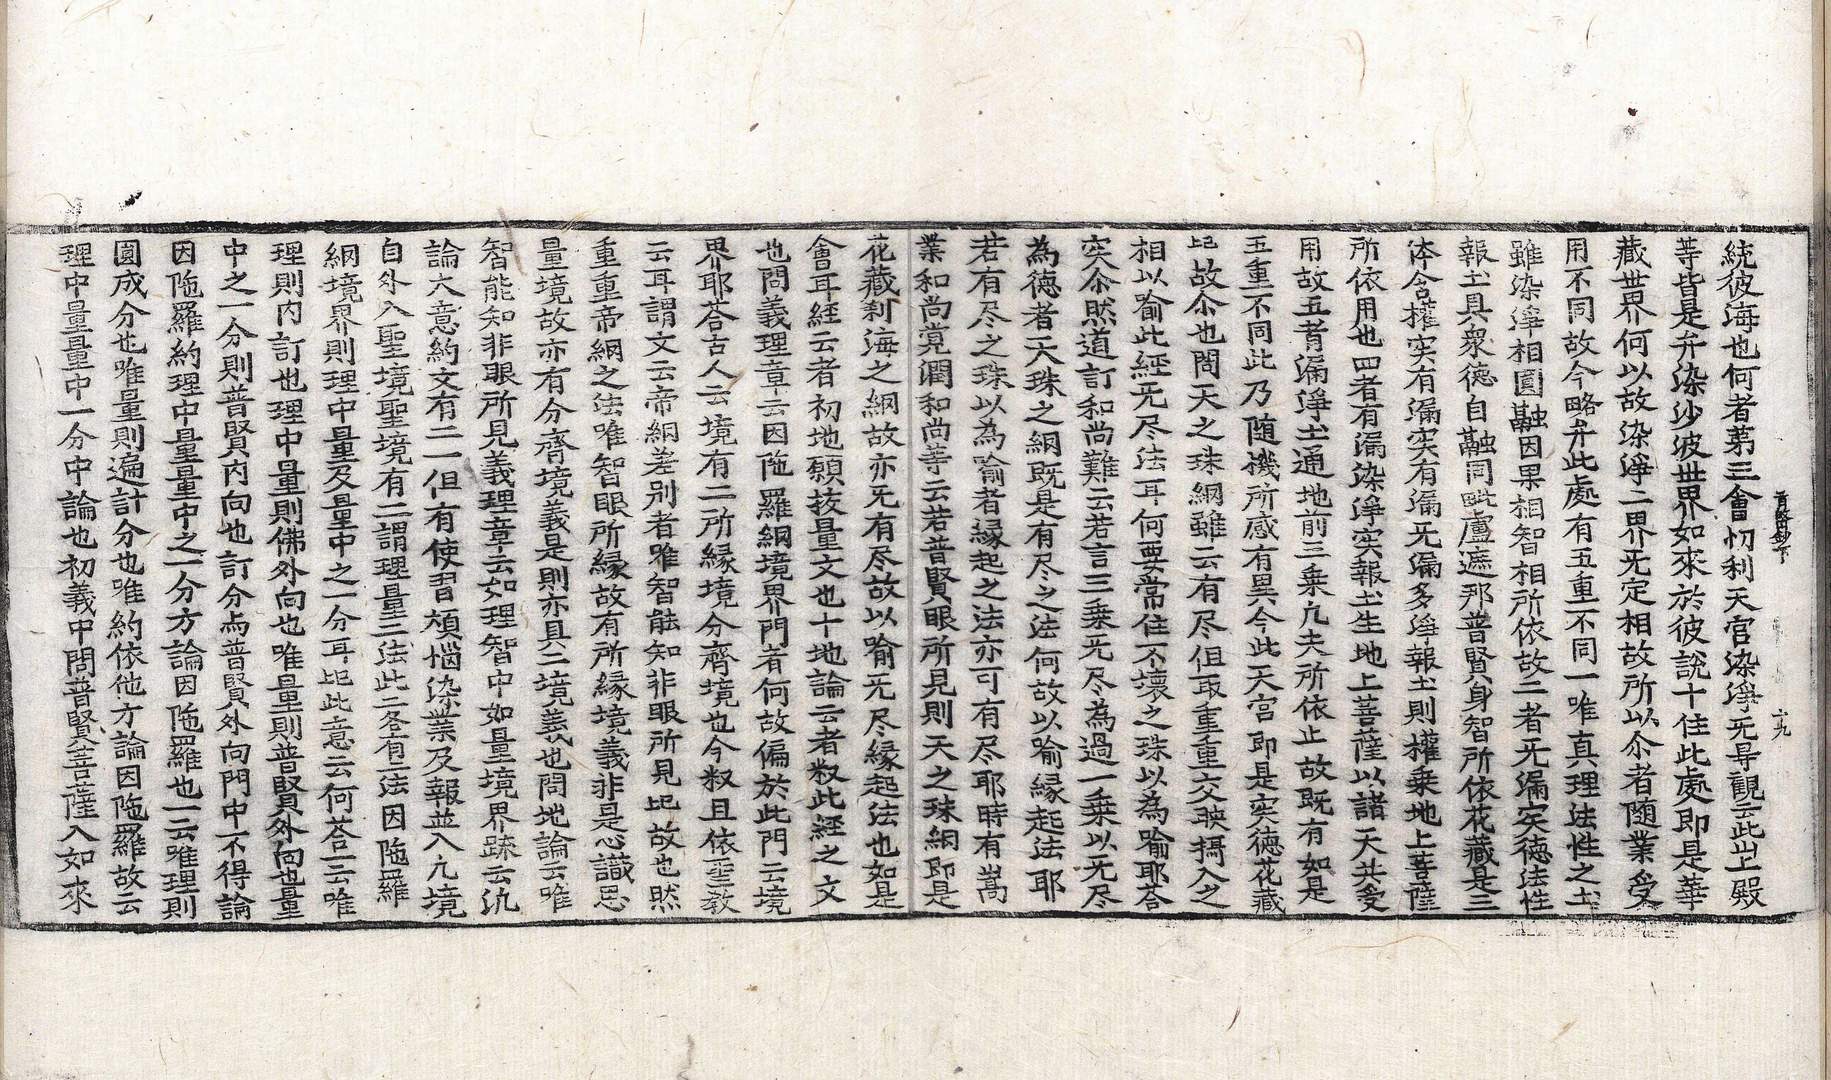 統彼海也何者第三會忉利天宫染淨无导觀云此山上殿
䓁皆是弁染沙彼世界如來於彼說十住此處即是華
藏世界何以故染淨二界无定相故所以尒者随業受
用不同故今略弁此處有五重不同一唯真理法性之土
雖染淨相圓融因果相智相所依故二者无漏实德法性
報土具衆德自融同毗盧遮那普賢身智所依花藏是三
体含權实有漏实有漏无漏多淨報土則權乗地上菩薩
所依用也四者有漏染淨实報土生地上菩薩以諸天共受
用故五者漏淨土通地前三乗凡夫所依止故既有如是
五重不同此乃随機所感有異今此天宮即是实德花藏
比故尒也問天之珠網雖云有尽但取重重交映攝入之
相以喻此經无尽法耳何要常住不壞之珠以為喻耶荅
实尒然道訂和尚難云若言三乗无尽為過一乗以无尽
為德者天珠之網既是有尽之法何故以喻縁起法耶
若有尽之珠以為喻者縁起之法亦可有尽耶時有嵩
業和尚覓潤和尚等云若普賢眼所見則天之珠網即是
花藏刹海之網故亦无有尽故以喻无尽縁起法也如是
會耳經云者初地願挍量文也十地論云者叙此經之文
也問義理章云因陁羅網境界門者何故偏於此門云境
界耶荅古人云境有二所縁境分齊境也今叙且依聖教
云耳謂文云帝網差别者唯智能知非眼所見比故也然
重重帝網之法唯智眼所縁故有所縁境義非是心識思
量境故亦有分齊境義是則亦具二境義也問地論云唯
智能知非眼所見義理章云如理智中如量境界䟽云仇
論大意約文有二一但有使習煩惱染業及報並入凡境
自外入聖境聖境有二謂理量二法此二各有二法因陁羅
網境界則理中量及量中之一分耳比此意云何荅一云唯
理則内訂也理中量則佛外向也唯量則普賢外向也量
中之一分則普賢内向也訂分与普賢外向門中不得論
因陁羅約理中量量中之一分方論因陁羅也一云唯理則
圓成分也唯量則遍計分也唯約依他方論因陁羅故云
理中量量中一分中論也初義中問普賢菩薩入如來